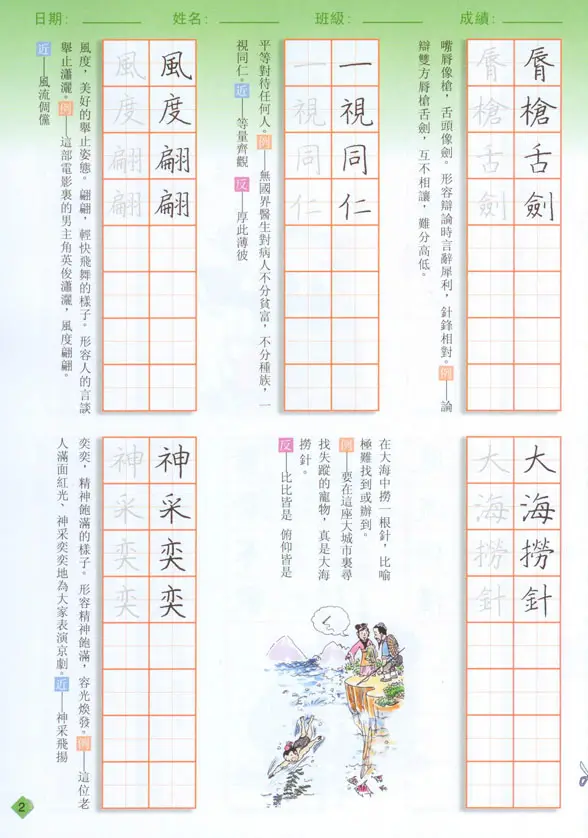 日期：
姓名：
班級：
成績：
脣槍舌劍
脣槍舌劍
嘴脣像槍，舌頭像劍。形容辯論時言辭犀利，針鋒相對。例——論
辯雙方脣槍舌劍，互不相讓，難分高低。
一視同仁
一視同仁
平等對待任何人。例——無國界醫生對病人不分貧富，不分種族，一
視同仁。近——等量齊觀 反——厚此薄彼
風度翩翩
風度翩翩
風度，美好的舉止姿態。翩翩，輕快飛舞的樣子。形容人的言談
舉止瀟灑。例——這部電影裏的男主角英俊瀟灑，風度翩翩。
近——風流倜儻
大海撈針
大海撈針
在大海中撈一根針，比喻
極難找到或辦到。
例——要在這座大城市裏尋
找失蹤的寵物，真是大海
撈針。
反——比比皆是 俯仰皆是
神采奕奕
神采奕奕
奕奕，精神飽滿的樣子。形容精神飽滿，容光煥發。例——這位老
人滿面紅光、神采奕奕地為大家表演京劇。近——神采飛揚
2